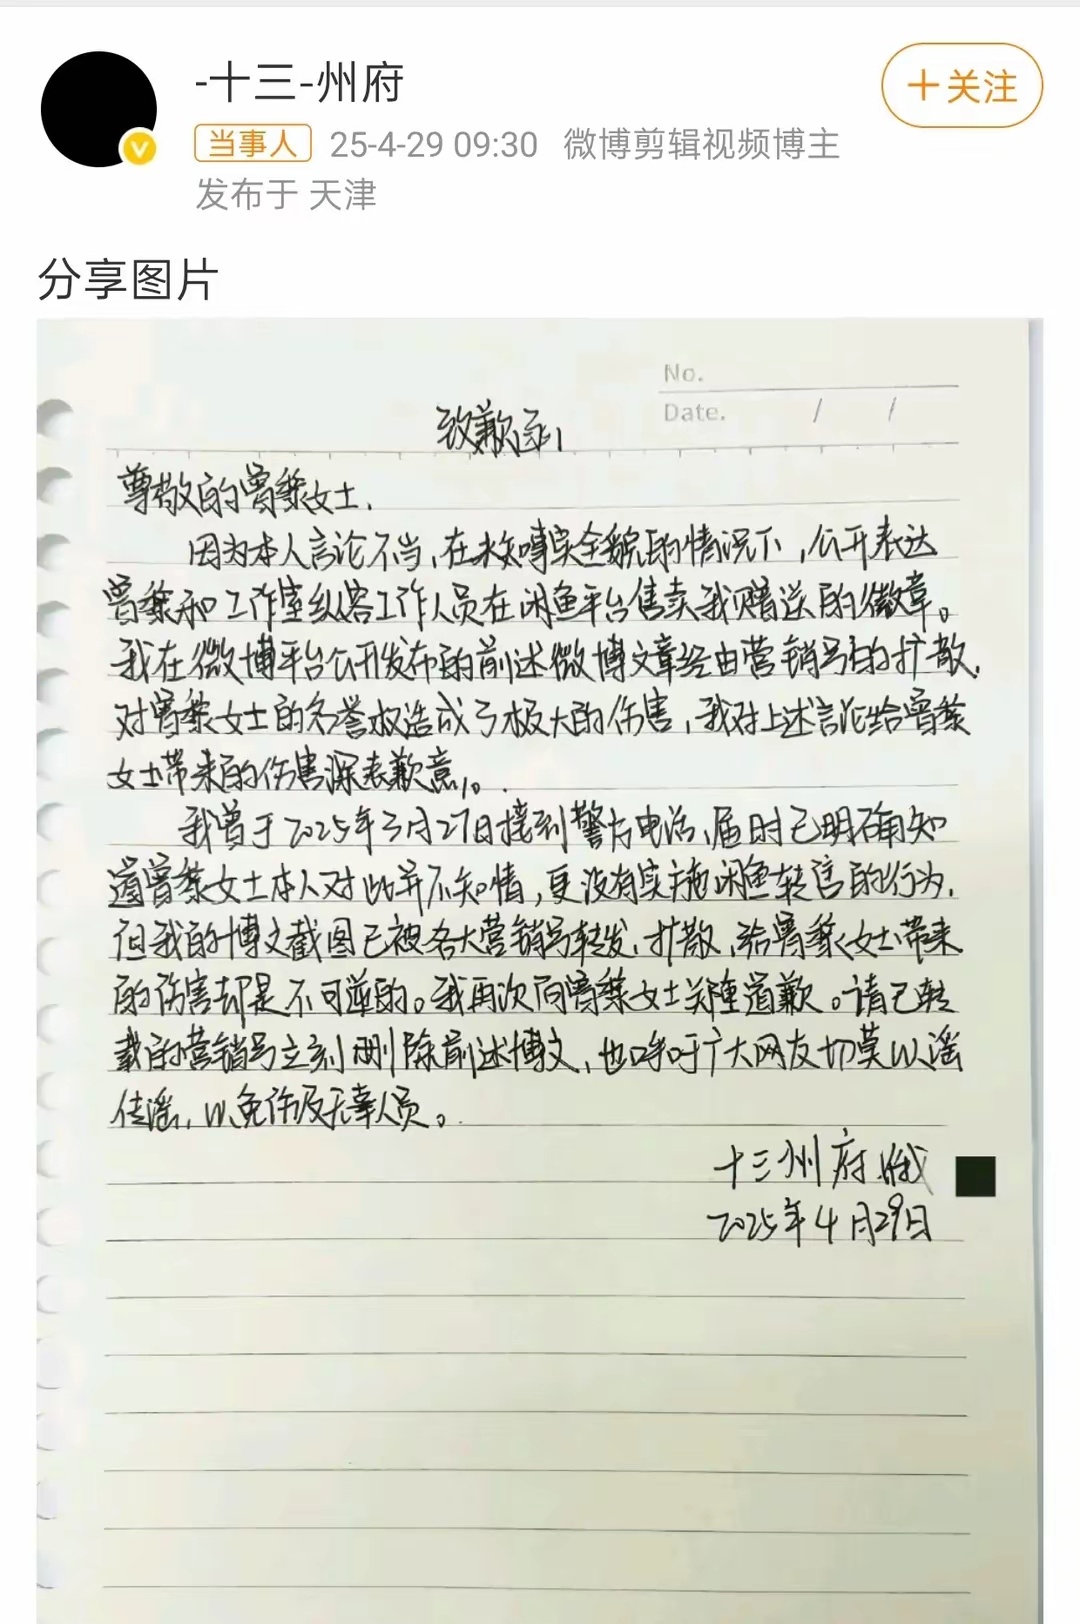 -十三-州府
+关注
当事人 25-4-29 09:30 微博剪辑视频博主
发布于 天津
分享图片
No.
Date. / /
致歉函
尊敬的曾黎女士,
因为本人言论不当,在未知事实全貌的情况下,公开表达
曾黎和工作室纵容工作人员在闲鱼平台售卖我赠送的徽章。
我在微博平台公开发布的前述微博文章经由营销号的扩散,
对曾黎女士的名誉权造成了极大的伤害,我对上述言论给曾黎
女士带来的伤害深表歉意。
我曾于2025年3月27日接到警方电话,届时已明确知
道曾黎女士本人对此并不知情,更没有实施闲鱼转售的行为,
但我的博文截图已被各大营销号转发、扩散,给曾黎女士带来
的伤害却是不可逆的。我再次向曾黎女士郑重道歉。请已转
载的营销号立刻删除前述博文,也呼吁广大网友切莫以谣
传谣,以免伤及无辜人员。
十三州府
2025年4月29日